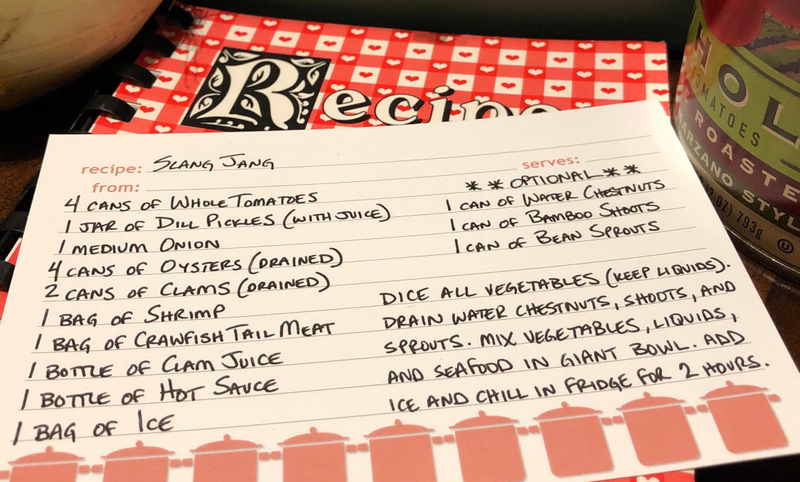 Recipe
recipe: SLANG JANG
serves:
from:
4 CANS OF WHOLE TOMATOES
1 JAR OF DILL PICKLES (WITH JUICE)
1 MEDIUM ONION
4 CANS OF OYSTERS (DRAINED)
2 CANS OF CLAMS (DRAINED)
1 BAG OF SHRIMP
1 BAG OF CRAWFISH TAIL MEAT
1 BOTTLE OF CLAM JUICE
1 BOTTLE OF HOT SAUCE
1 BAG OF ICE
* * OPTIONAL * *
1 CAN OF WATER CHESTNUTS
1 CAN OF BAMBOO SHOOTS
1 CAN OF BEAN SPROUTS
DICE ALL VEGETABLES (KEEP LIQUIDS).
DRAIN WATER CHESTNUTS, SHOOTS, AND
SPROUTS. MIX VEGETABLES, LIQUIDS,
AND SEAFOOD IN GIANT BOWL. ADD
ICE AND CHILL IN FRIDGE FOR 2 HOURS.
HOL
TOMATOES
ROASTE
MARZANO STYL
OZ) 793g